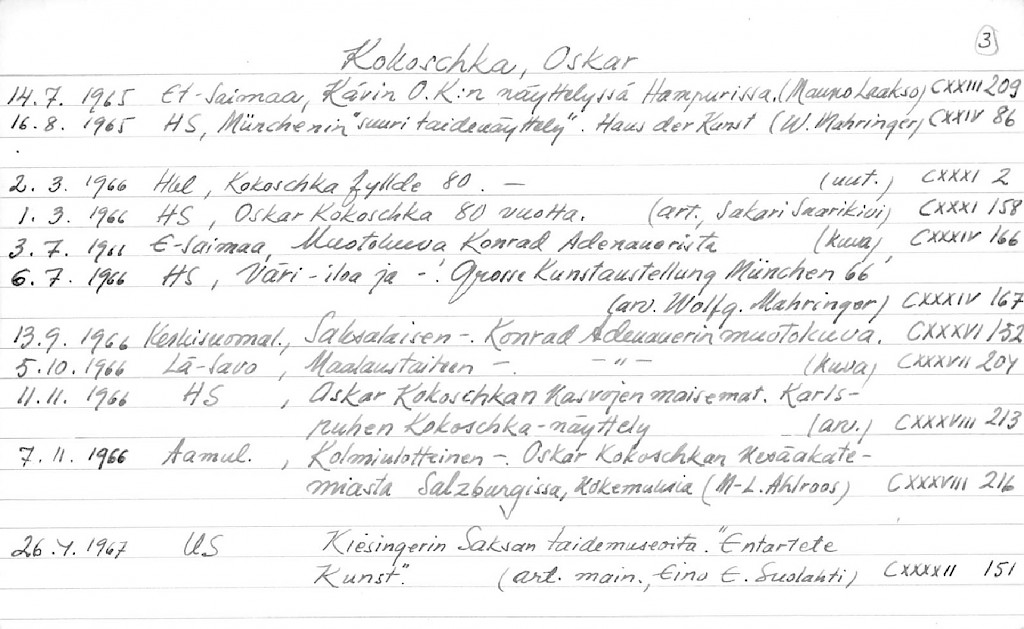 3
Kokoschka, Oskar
14.7. 1965 Et-Saimaa, Kävin O.K:n näyttelyssä Hampurissa. (Mauno Laakso) CXXIII 209
16.8. 1965 HS, Münchenin "suuri taidenäyttely". Haus der Kunst (W. Mahringer) CXXIV 86
2.3. 1966 Hbl, Kokoschka fyllde 80. — (uut.) CXXXI 2
1.3. 1966 HS, Oskar Kokoschka 80 vuotta. (art., Sakari Saarikivi) CXXXI 158
3.7. 1966 E-Saimaa, Muotokuva Konrad Adenauerista (kuva) CXXXIV 166
6.7. 1966 HS, Väri-iloa ja -! Grosse Kunstaustellung München 66
(arv. Wolfg. Mahringer) CXXXIV 167
13.9. 1966 Keskisuomal., Saksalaisen -. Konrad Adenauerin muotokuva. CXXXVI 152
5.10. 1966 Lä-Savo, Maalaustaiteen -. -"- (kuva) CXXXVII 204
11.11. 1966 HS, Oskar Kokoschkan Kasvojen maisemat. Karls-
ruhen Kokoschka-näyttely (arv.) CXXXVIII 213
7.11. 1966 Aamul., Kolmiulotteinen -. Oskar Kokoschkan kesäakate-
miasta Salzburgissa, kokemuksia (M-L. Ahlroos) CXXXVIII 216
26.4. 1967 US Kiesingerin Saksan taidemuseoita. "Entartete
Kunst". (art. main., Eino E. Suolahti) CXXXXII 151